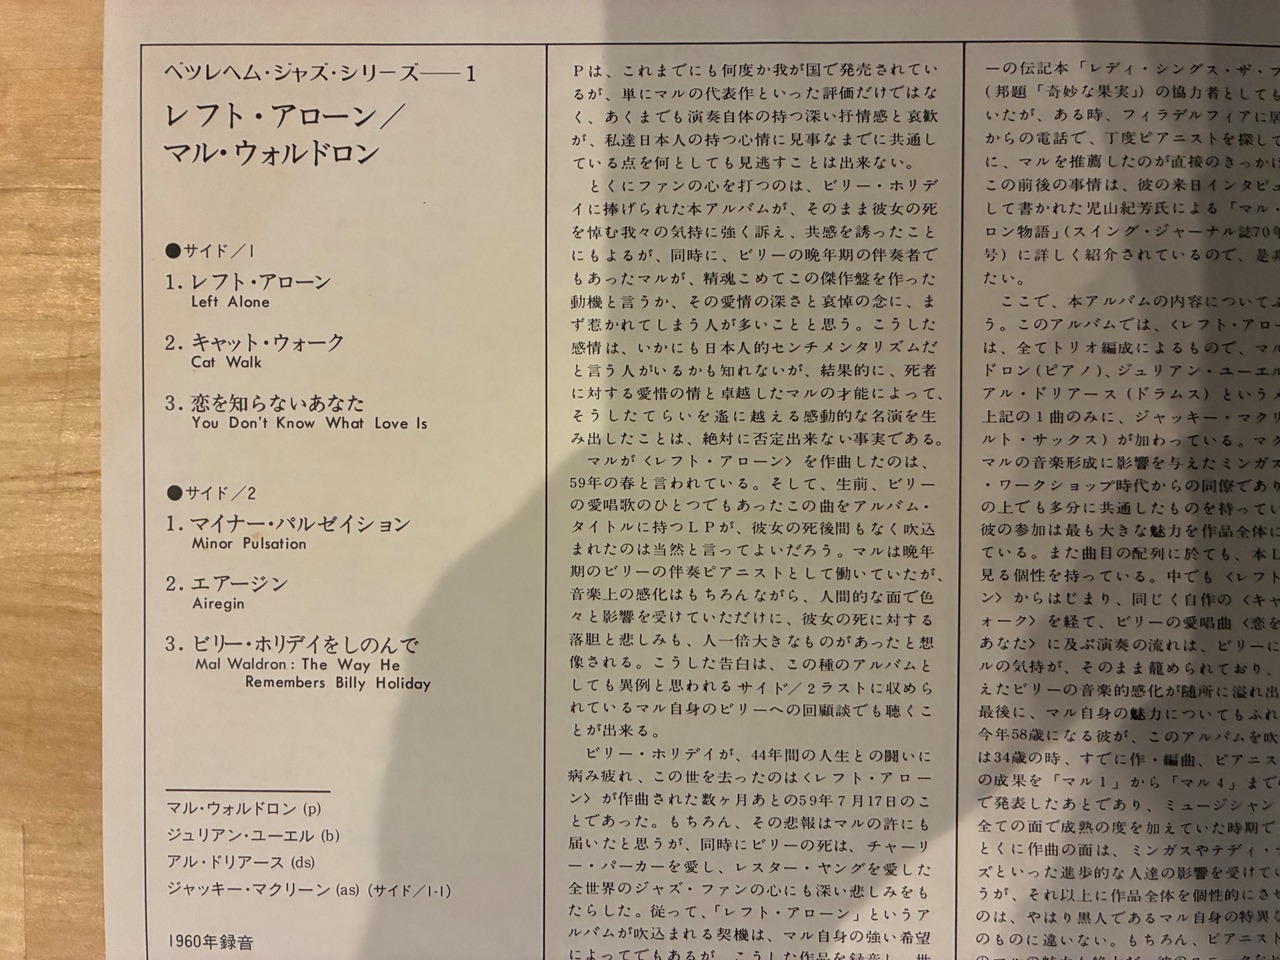 ベツレヘム・ジャズ・シリーズ――1
レフト・アローン／
マル・ウォルドロン
●サイド／1
1. レフト・アローン
Left Alone
2. キャット・ウォーク
Cat Walk
3. 恋を知らないあなた
You Don't Know What Love Is
●サイド／2
1. マイナー・パルゼイション
Minor Pulsation
2. エアージン
Airegin
3. ビリー・ホリデイをしのんで
Mal Waldron : The Way He
Remembers Billy Holiday
マル・ウォルドロン (p)
ジュリアン・ユーエル (b)
アル・ドリアース (ds)
ジャッキー・マクリーン (as) (サイド／1-1)
1960年録音
Pは、これまでにも何度か我が国で発売されてい
るが、単にマルの代表作といった評価だけではな
く、あくまでも演奏自体の持つ深い抒情感と哀歓
が、私達日本人の持つ心情に見事なまでに共通し
ている点を何としても見逃すことは出来ない。
とくにファンの心を打つのは、ビリー・ホリデ
イに捧げられた本アルバムが、そのまま彼女の死
を悼む我々の気持に強く訴え、共感を誘ったこと
にもよるが、同時に、ビリーの晩年期の伴奏者で
もあったマルが、精魂こめてこの傑作盤を作った
動機と言うか、その愛情の深さと哀悼の念に、ま
ず惹かれてしまう人が多いことと思う。こうした
感情は、いかにも日本人的センチメンタリズムだ
と言う人がいるかも知れないが、結果的に、死者
に対する愛惜の情と卓越したマルの才能によって、
そうしたてらいを遙に越える感動的な名演を生
み出したことは、絶対に否定出来ない事実である。
マルが〈レフト・アローン〉を作曲したのは、
59年の春と言われている。そして、生前、ビリー
の愛唱歌のひとつでもあったこの曲をアルバム・
タイトルに持つLPが、彼女の死後間もなく吹込
まれたのは当然と言ってよいだろう。マルは晩年
期のビリーの伴奏ピアニストとして働いていたが、
音楽上の感化はもちろんながら、人間的な面で色
々と影響を受けていただけに、彼女の死に対する
落胆と悲しみも、人一倍大きなものがあったと想
像される。こうした告白は、この種のアルバムと
しても異例と思われるサイド／2ラストに収めら
れているマル自身のビリーへの回顧談でも聴くこ
とが出来る。
ビリー・ホリデイが、44年間の人生との闘いに
病み疲れ、この世を去ったのは〈レフト・アロー
ン〉が作曲された数ヶ月あとの59年7月17日のこ
とであった。もちろん、その悲報はマルの許にも
届いたと思うが、同時にビリーの死は、チャーリ
ー・パーカーを愛し、レスター・ヤングを愛した
全世界のジャズ・ファンの心にも深い悲しみをも
たらした。従って、「レフト・アローン」というア
ルバムが吹込まれる契機は、マル自身の強い希望
によってでもあるが、こうした作品を録音し、世
ーの伝記本「レディ・シングス・ザ・ブ
(邦題「奇妙な果実」) の協力者としても
いたが、ある時、フィラデルフィアに居
からの電話で、丁度ピアニストを探して
に、マルを推薦したのが直接のきっかけ
この前後の事情は、彼の来日インタビュ
して書かれた児山紀芳氏による「マル・
ロン物語」(スイング・ジャーナル誌70年
号) に詳しく紹介されているので、是非
たい。
ここで、本アルバムの内容についてふ
う。このアルバムでは、〈レフト・アロー
は、全てトリオ編成によるもので、マル
ドロン(ピアノ)、ジュリアン・ユーエル
アル・ドリアース (ドラムス) というメ
上記の1曲のみに、ジャッキー・マクリ
ルト・サックス) が加わっている。マク
マルの音楽形成に影響を与えたミンガス
・ワークショップ時代からの同僚であり
の上でも多分に共通したものを持ってい
彼の参加は最も大きな魅力を作品全体に
ている。また曲目の配列に於ても、本L
見る個性を持っている。中でも〈レフト
ン〉からはじまり、同じく自作の〈キャ
ォーク〉を経て、ビリーの愛唱曲〈恋を
あなた〉に及ぶ演奏の流れは、ビリーに
ルの気持が、そのまま籠められており、
えたビリーの音楽的感化が随所に溢れ出
最後に、マル自身の魅力についてもふれ
今年58歳になる彼が、このアルバムを吹
は34歳の時、すでに作・編曲、ピアニス
の成果を「マル1」から「マル4」まで
で発表したあとであり、ミュージシャン
全ての面で成熟の度を加えていた時期で
とくに作曲の面は、ミンガスやテディ・
ズといった進歩的な人達の影響を受けてい
うが、それ以上に作品全体を個性的にさせ
のは、やはり黒人であるマル自身の特異な
のものに違いない。もちろん、ピアニスト